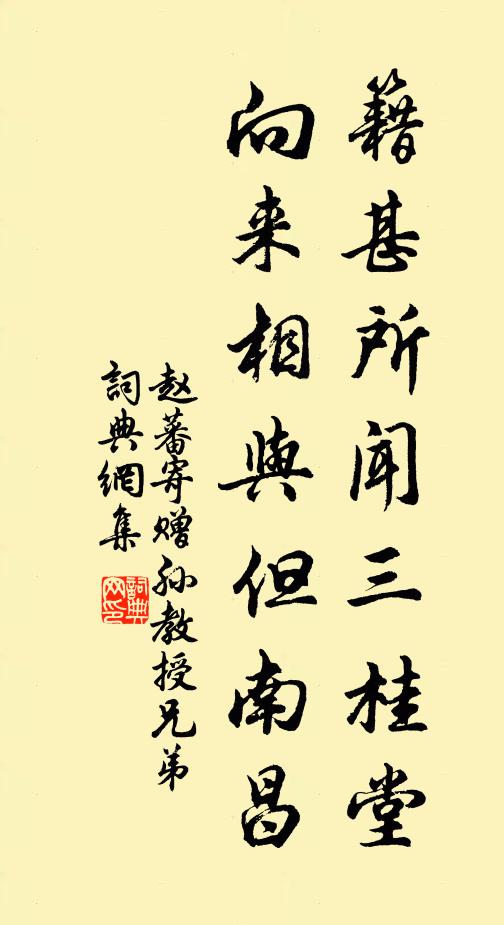 籍甚所闻三桂堂
向来相與但南昌
赵蕃寄赠孙教授兄弟
詞典網集
詞典网印